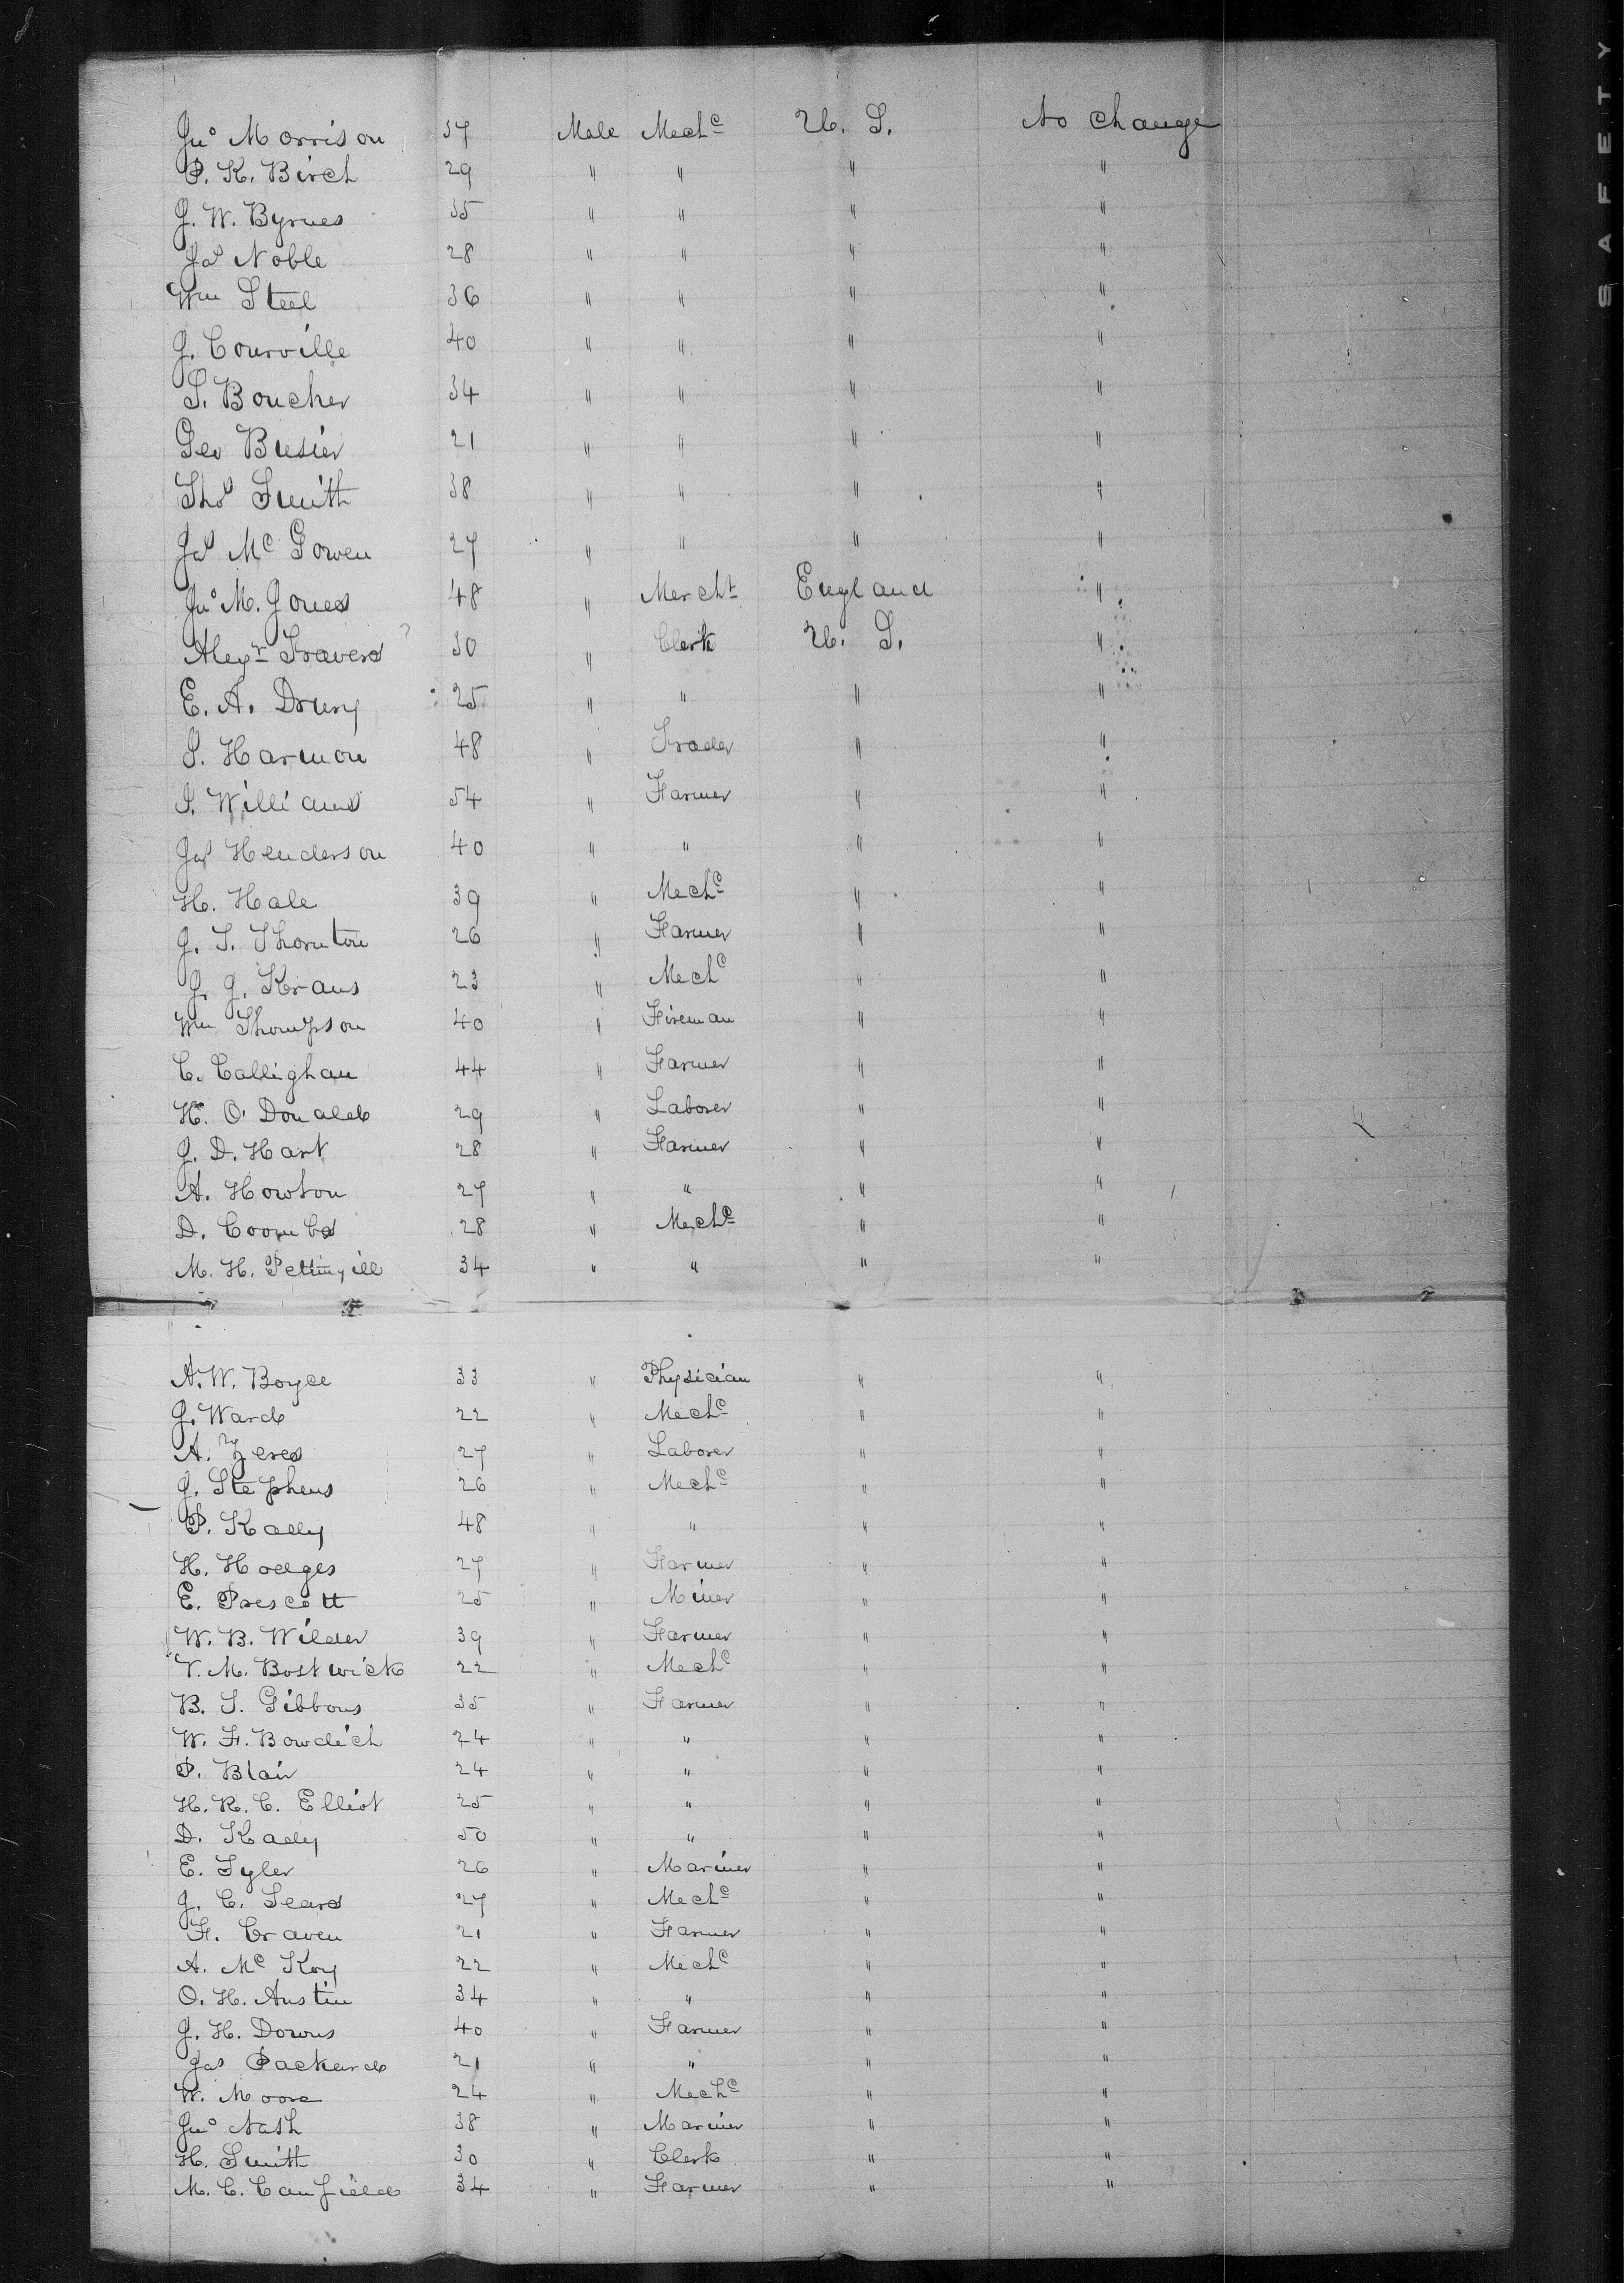 Jno Morrison 37 Male Mechc U. S. No change
P. K. Birch 29 " " " "
J. W. Byrnes 35 " " " "
Jas Noble 28 " " " "
Wm Steel 36 " " " "
J. Courville 40 " " " "
S. Boucher 34 " " " "
Geo Busier 21 " " " "
Thos Smith 38 " " " "
Jas Mc Gowen 27 " " " "
Jno M. Jones 48 " Mercht England "
Alexr Travers 30 " Clerk U. S. "
E. A. Drury 25 " " " "
S. Harmon 48 " Trader " "
S. Williams 54 " Farmer " "
Jas Henderson 40 " " " "
H. Hale 39 " Mechc " "
J. S. Thornton 26 " Farmer " "
J. J. Kraus 23 " Mechc " "
Wm Thompson 40 " Fireman " "
C. Callighan 44 " Farmer " "
H. O'Donald 29 " Laborer " "
J. D. Hart 28 " Farmer " "
A. Howton 27 " " " "
D. Coombs 28 " Mechc " "
M. H. Pettingill 34 " " " "
A. W. Boyce 33 " Physician " "
J. Ward 22 " Mechc " "
A. 27 " Laborer " "
J. Stephens 26 " Mechc " "
P. Kady 48 " " " "
H. Hodges 27 " Farmer " "
E. Prescott 25 " Miner " "
W. B. Wilder 39 " Farmer " "
V. M. Bostwick 22 " Mechc " "
B. S. Gibbons 35 " Farmer " "
W. F. Bowdich 24 " " " "
P. Blair 24 " " " "
H. R. C. Elliot 25 " " " "
D. Kady 50 " " " "
E. Tyler 26 " Mariner " "
J. C. Sears 27 " Mechc " "
F. Craven 21 " Farmer " "
A. Mc Koy 22 " Mechc " "
O. H. Austin 34 " " " "
J. H. Downs 40 " Farmer " "
Jas Packard 21 " " " "
W. Moore 24 " Mechc " "
Jno Nash 38 " Mariner " "
H. Smith 30 " Clerk " "
M. C. Canfield 34 " Farmer " "
SAFETY